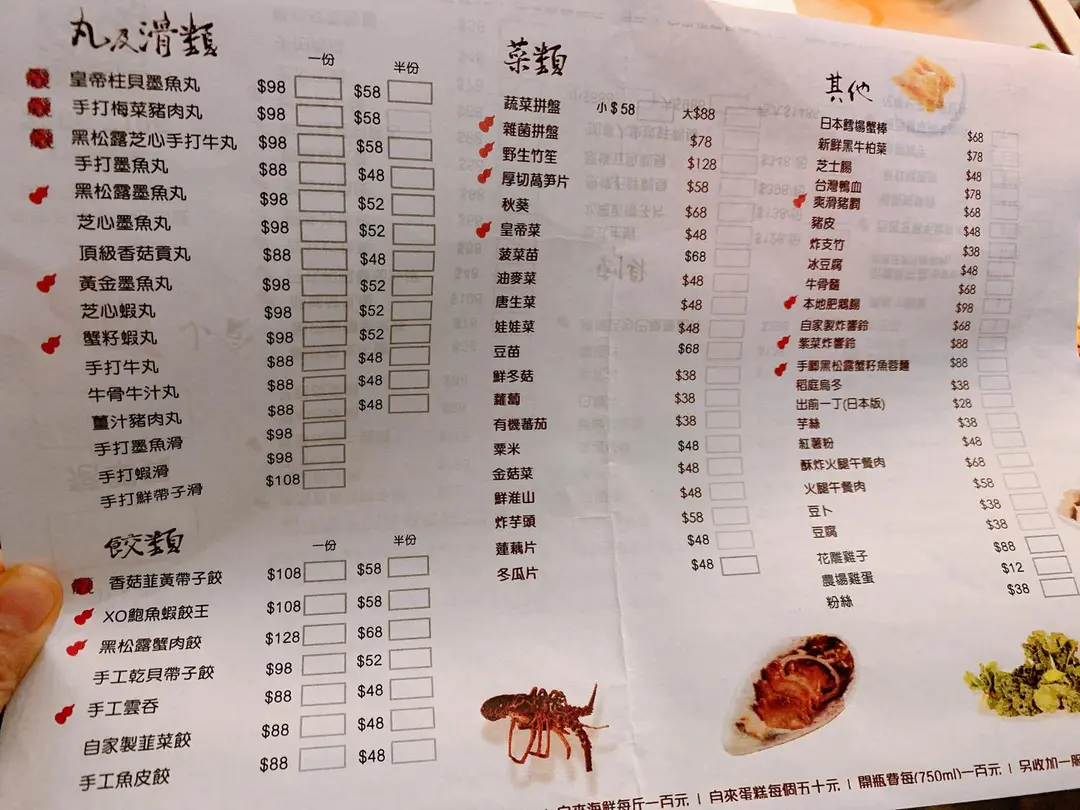 丸及滑類 一份 半份
皇帝柱貝墨魚丸 $98 $58
手打梅菜豬肉丸 $98 $58
黑松露芝心手打牛丸 $98 $58
手打墨魚丸 $88 $48
黑松露墨魚丸 $98 $52
芝心墨魚丸 $98 $52
頂級香菇貢丸 $88 $48
黃金墨魚丸 $98 $52
芝心蝦丸 $98 $52
蟹籽蝦丸 $98 $52
手打牛丸 $88 $48
牛骨牛汁丸 $88 $48
薑汁豬肉丸 $88 $48
手打墨魚滑 $98
手打蝦滑 $98
手打鮮帶子滑 $108
餃類 一份 半份
香菇韮黃帶子餃 $108 $58
XO鮑魚蝦餃王 $108 $58
黑松露蟹肉餃 $128 $68
手工乾貝帶子餃 $98 $52
手工雲吞 $88 $48
自家製韮菜餃 $88 $48
手工魚皮餃 $88 $48
菜類
蔬菜拼盤 小$58 大$88
雜菌拼盤 $78
野生竹笙 $128
厚切萵笋片 $58
秋葵 $68
皇帝菜 $48
菠菜苗 $68
油麥菜 $48
唐生菜 $48
娃娃菜 $48
豆苗 $68
鮮冬菇 $38
蘿蔔 $38
有機番茄 $38
粟米 $48
金菇菜 $48
鮮淮山 $48
炸芋頭 $58
蓮藕片 $48
冬瓜片 $48
其他
日本鱈場蟹棒 $68
新鮮黑牛柏葉 $78
芝士腸 $48
台灣鴨血 $78
爽滑豬膶 $68
豬皮 $48
炸支竹 $38
冰豆腐 $48
牛骨髓 $68
本地肥鵝腸 $98
自家製炸響鈴 $68
紫菜炸響鈴 $88
手唧黑松露蟹籽魚蓉麵 $88
稻庭烏冬 $38
出前一丁(日本版) $28
芋絲 $38
紅薯粉 $48
酥炸火腿午餐肉 $68
火腿午餐肉 $58
豆卜 $38
豆腐 $38
花雕雞子 $88
農場雞蛋 $12
粉絲 $38
自來海鮮每斤一百元 | 自來蛋糕每個五十元 | 開瓶費每(750ml)一百元 | 另收加一